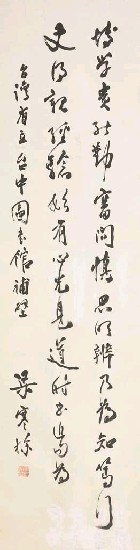 博學貴能勤審問慎思明辨乃為知篤行
經驗始有心光見道時
台灣省立台中圖書館補壁
梁寒操